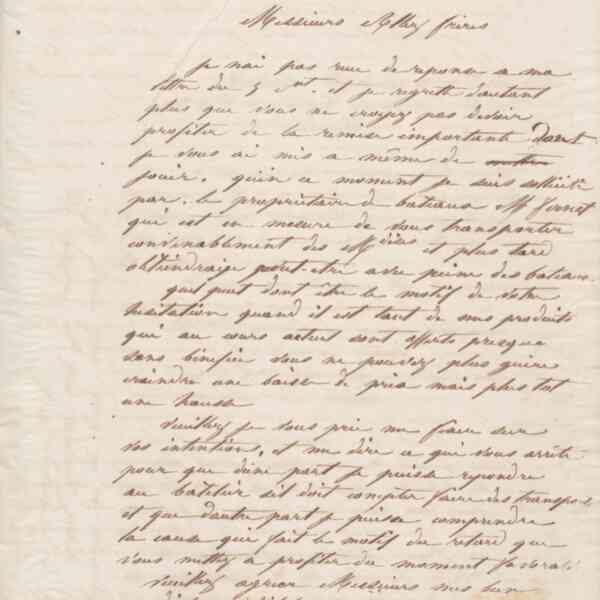 Messieurs frères
je nai pas recue de reponse a ma
lettre du 5 et je regrette dautant
plus que vous ne croyez pas devoir
profiter de la remise importante dont
je vous ai mis a même de
jouir. quen ce moment je suis sollicité
par le propriétaire de bateaux Mr
qui est en mesure de vous transporter
convenablement des et plus tard
obtiendraije peut-etre avec peine des bateaux
quel peut dont être le motif de votre
hesitation quand il est tant de nos produits
qui au cours actuel sont offerts presque
sans bénéfice vous ne pouvez plus guere
craindre une baisse de prix mais plus tot
une hausse
Veuillez je vous prie me fixer sur
vos intentions, et me dire ce qui vous arrête
pour que dune part je puisse repondre
au batelier sil doit compter faire des transpo
et que dautre part je puisse comprendre
la cause qui fait le motif du retard que
vous mettez a profiter du moment favorable
Veuillez agreer Messieurs mes bien